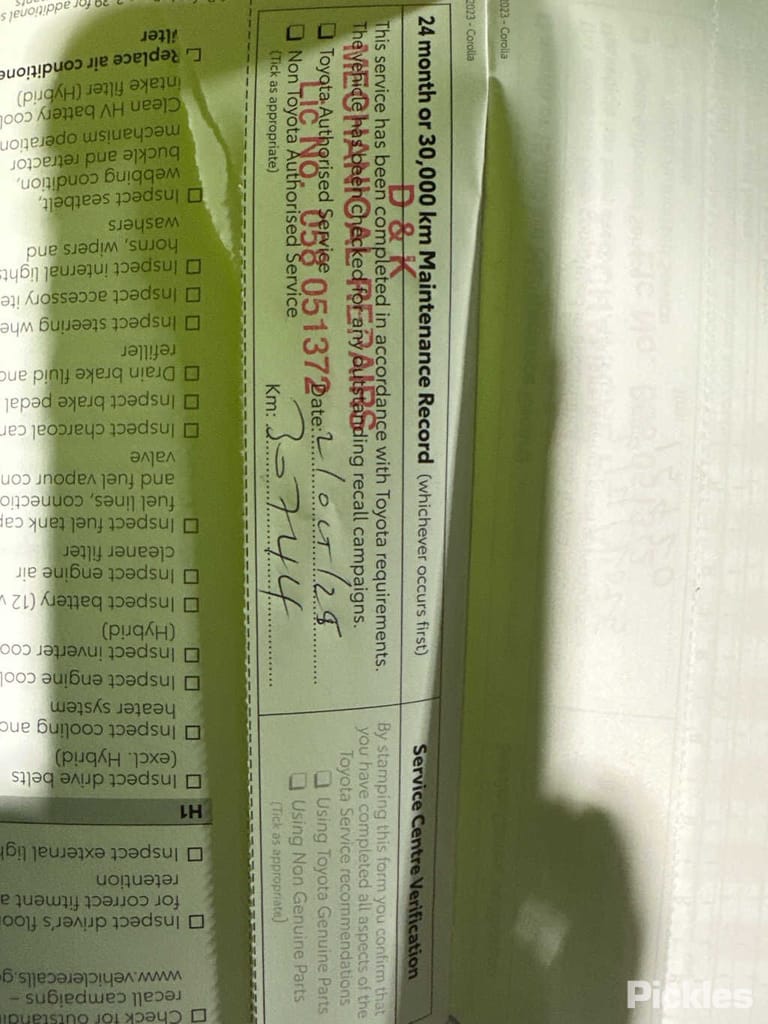 2023 - Corolla
2023 - Corolla
24 month or 30,000 km Maintenance Record (whichever occurs first)
This service has been completed in accordance with Toyota requirements.
The vehicle has been checked for any outstanding recall campaigns.
☐ Toyota Authorised Service
☐ Non Toyota Authorised Service
(Tick as appropriate)
D & K
MECHANICAL REPAIRS
Lic No. 058 051372
Date:
Km: 30744
Service Centre Verification
By stamping this form you confirm that
you have completed all aspects of the
Toyota Service recommendations
☐ Using Toyota Genuine Parts
☐ Using Non Genuine Parts
(Tick as appropriate)
☐ Check for
recall campaigns –
www.vehiclerecalls.g
☐ Inspect driver's floor
for correct fitment a
retention
☐ Inspect external ligh
H1
☐ Inspect drive belts
(excl. Hybrid)
☐ Inspect cooling and
heater system
☐ Inspect engine cool
☐ Inspect inverter coo
(Hybrid)
☐ Inspect battery (12 v
☐ Inspect engine air
cleaner filter
☐ Inspect fuel tank cap
fuel lines, connectio
and fuel vapour con
valve
☐ Inspect charcoal can
☐ Inspect brake pedal
☐ Drain brake fluid and
refiller
☐ Inspect steering whe
☐ Inspect accessory ite
☐ Inspect internal lights
horns, wipers and
washers
☐ Inspect seatbelt,
webbing condition,
buckle and retractor
mechanism operation
Clean HV battery cool
intake filter (Hybrid)
☐ Replace air conditione
filter
for additional s
Pickles